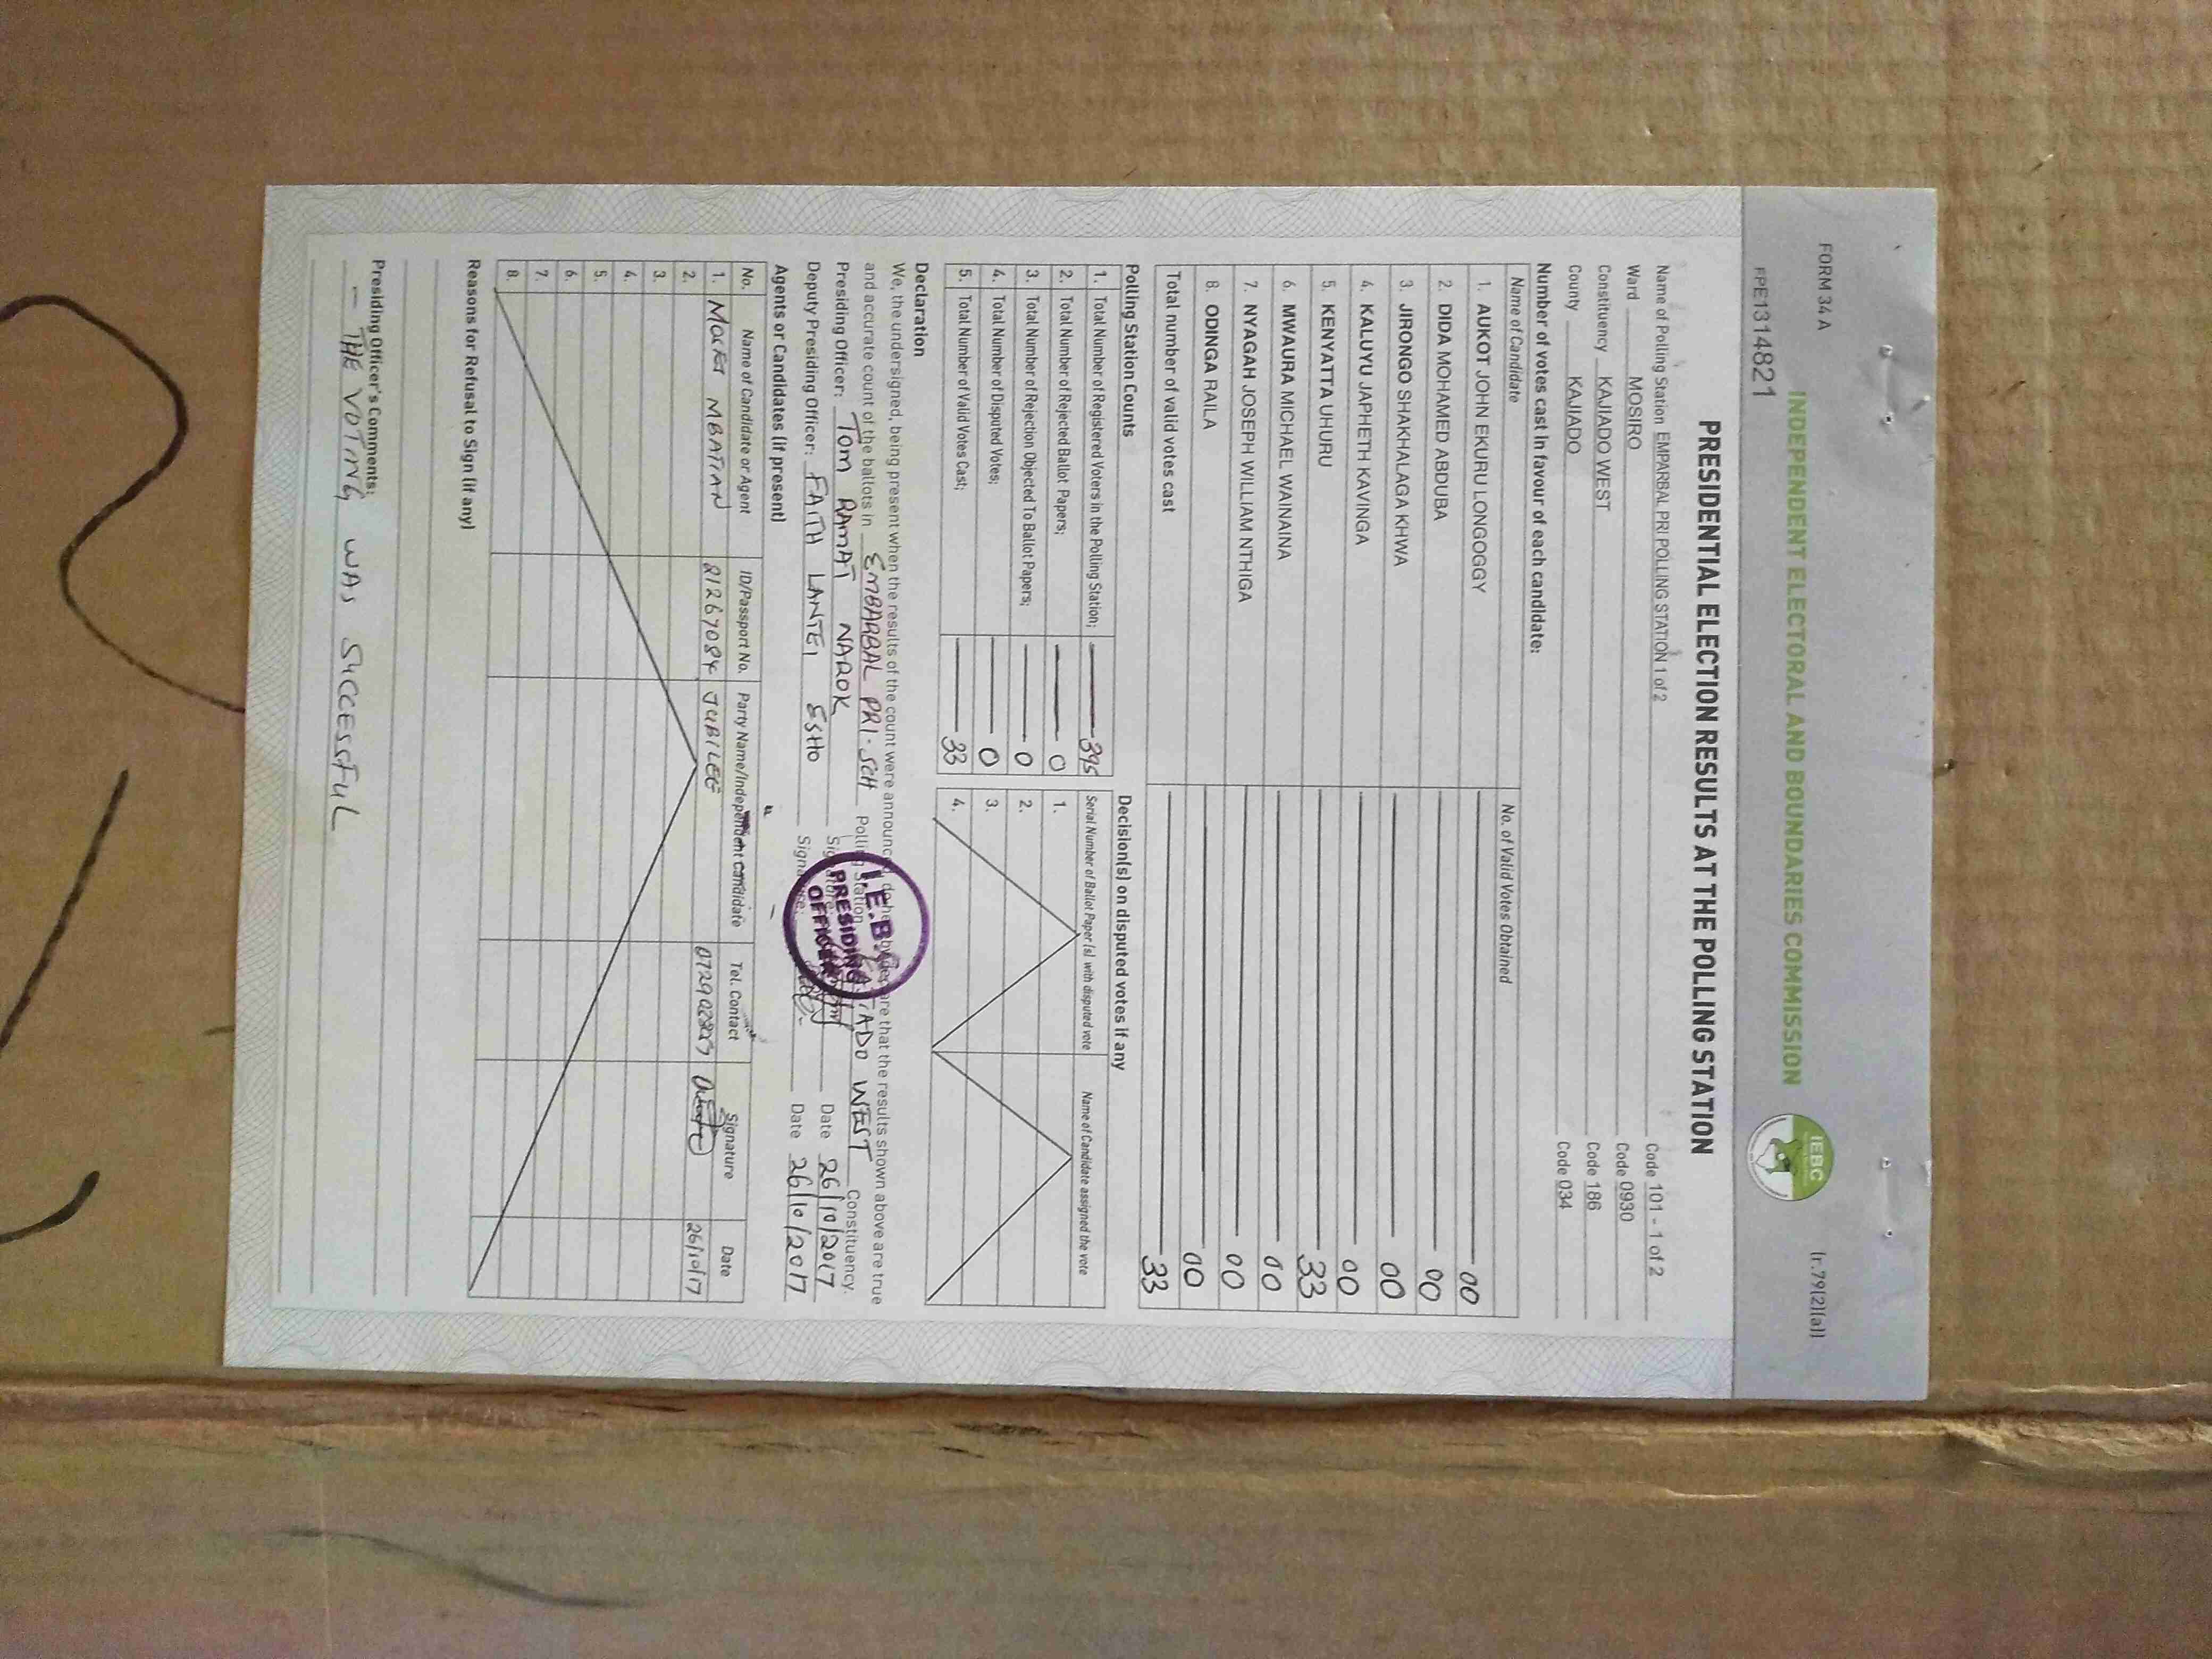 FORM 34 A
(r.79(2)(a))
INDEPENDENT ELECTORAL AND BOUNDARIES COMMISSION
IEBC
FPE1314821
PRESIDENTIAL ELECTION RESULTS AT THE POLLING STATION
Name of Polling Station EMPARBAL PRI POLLING STATION 1 of 2 Code 101 - 1 of 2
Ward MOSIRO Code 0930
Constituency KAJIADO WEST Code 186
County KAJIADO Code 034
Number of votes cast in favour of each candidate:
Name of Candidate No. of Valid Votes Obtained
1. AUKOT JOHN EKURU LONGOGGY 00
2. DIDA MOHAMED ABDUBA 00
3. JIRONGO SHAKHALAGA KHWA 00
4. KALUYU JAPHETH KAVINGA 00
5. KENYATTA UHURU 33
6. MWAURA MICHAEL WAINAINA 00
7. NYAGAH JOSEPH WILLIAM NTHIGA 00
8. ODINGA RAILA 00
Total number of valid votes cast 33
Polling Station Counts
1. Total Number of Registered Voters in the Polling Station; 395
2. Total Number of Rejected Ballot Papers; 0
3. Total Number of Rejection Objected To Ballot Papers; 0
4. Total Number of Disputed Votes; 0
5. Total Number of Valid Votes Cast; 33
Decision(s) on disputed votes if any
Serial Number of Ballot Paper(s) with disputed vote Name of Candidate assigned the vote
1.
2.
3.
4.
Declaration
We, the undersigned, being present when the results of the count were announced, do hereby declare that the results shown above are true
and accurate count of the ballots in EMBARBAL PRI. SCH Polling Station WEST Constituency.
Presiding Officer: TOM RAMAT NAROK Date 26/10/2017
Deputy Presiding Officer: FAITH LANTEI ESHO Date 26/10/2017
I.E.B.C
PRESIDING
OFFICER
Agents or Candidates (if present)
No. Name of Candidate or Agent ID/Passport No. Party Name/Independent Candidate Tel. Contact Signature Date
1. MBATIAN 21267084 JUBILEE 26/10/17
2.
3.
4.
5.
6.
7.
8.
Reasons for Refusal to Sign (if any)
Presiding Officer's Comments:
— THE VOTING WAS SUCCESSFUL